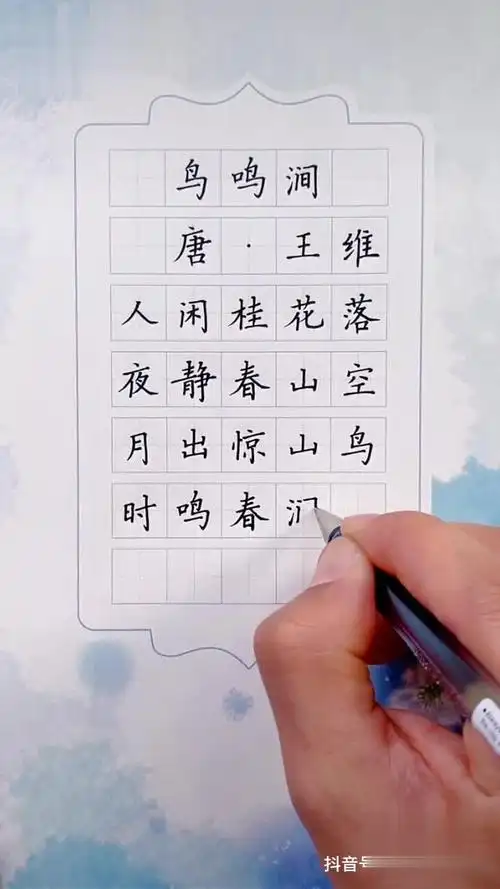 鸟鸣涧
唐·王维
人闲桂花落
夜静春山空
月出惊山鸟
时鸣春
抖音号